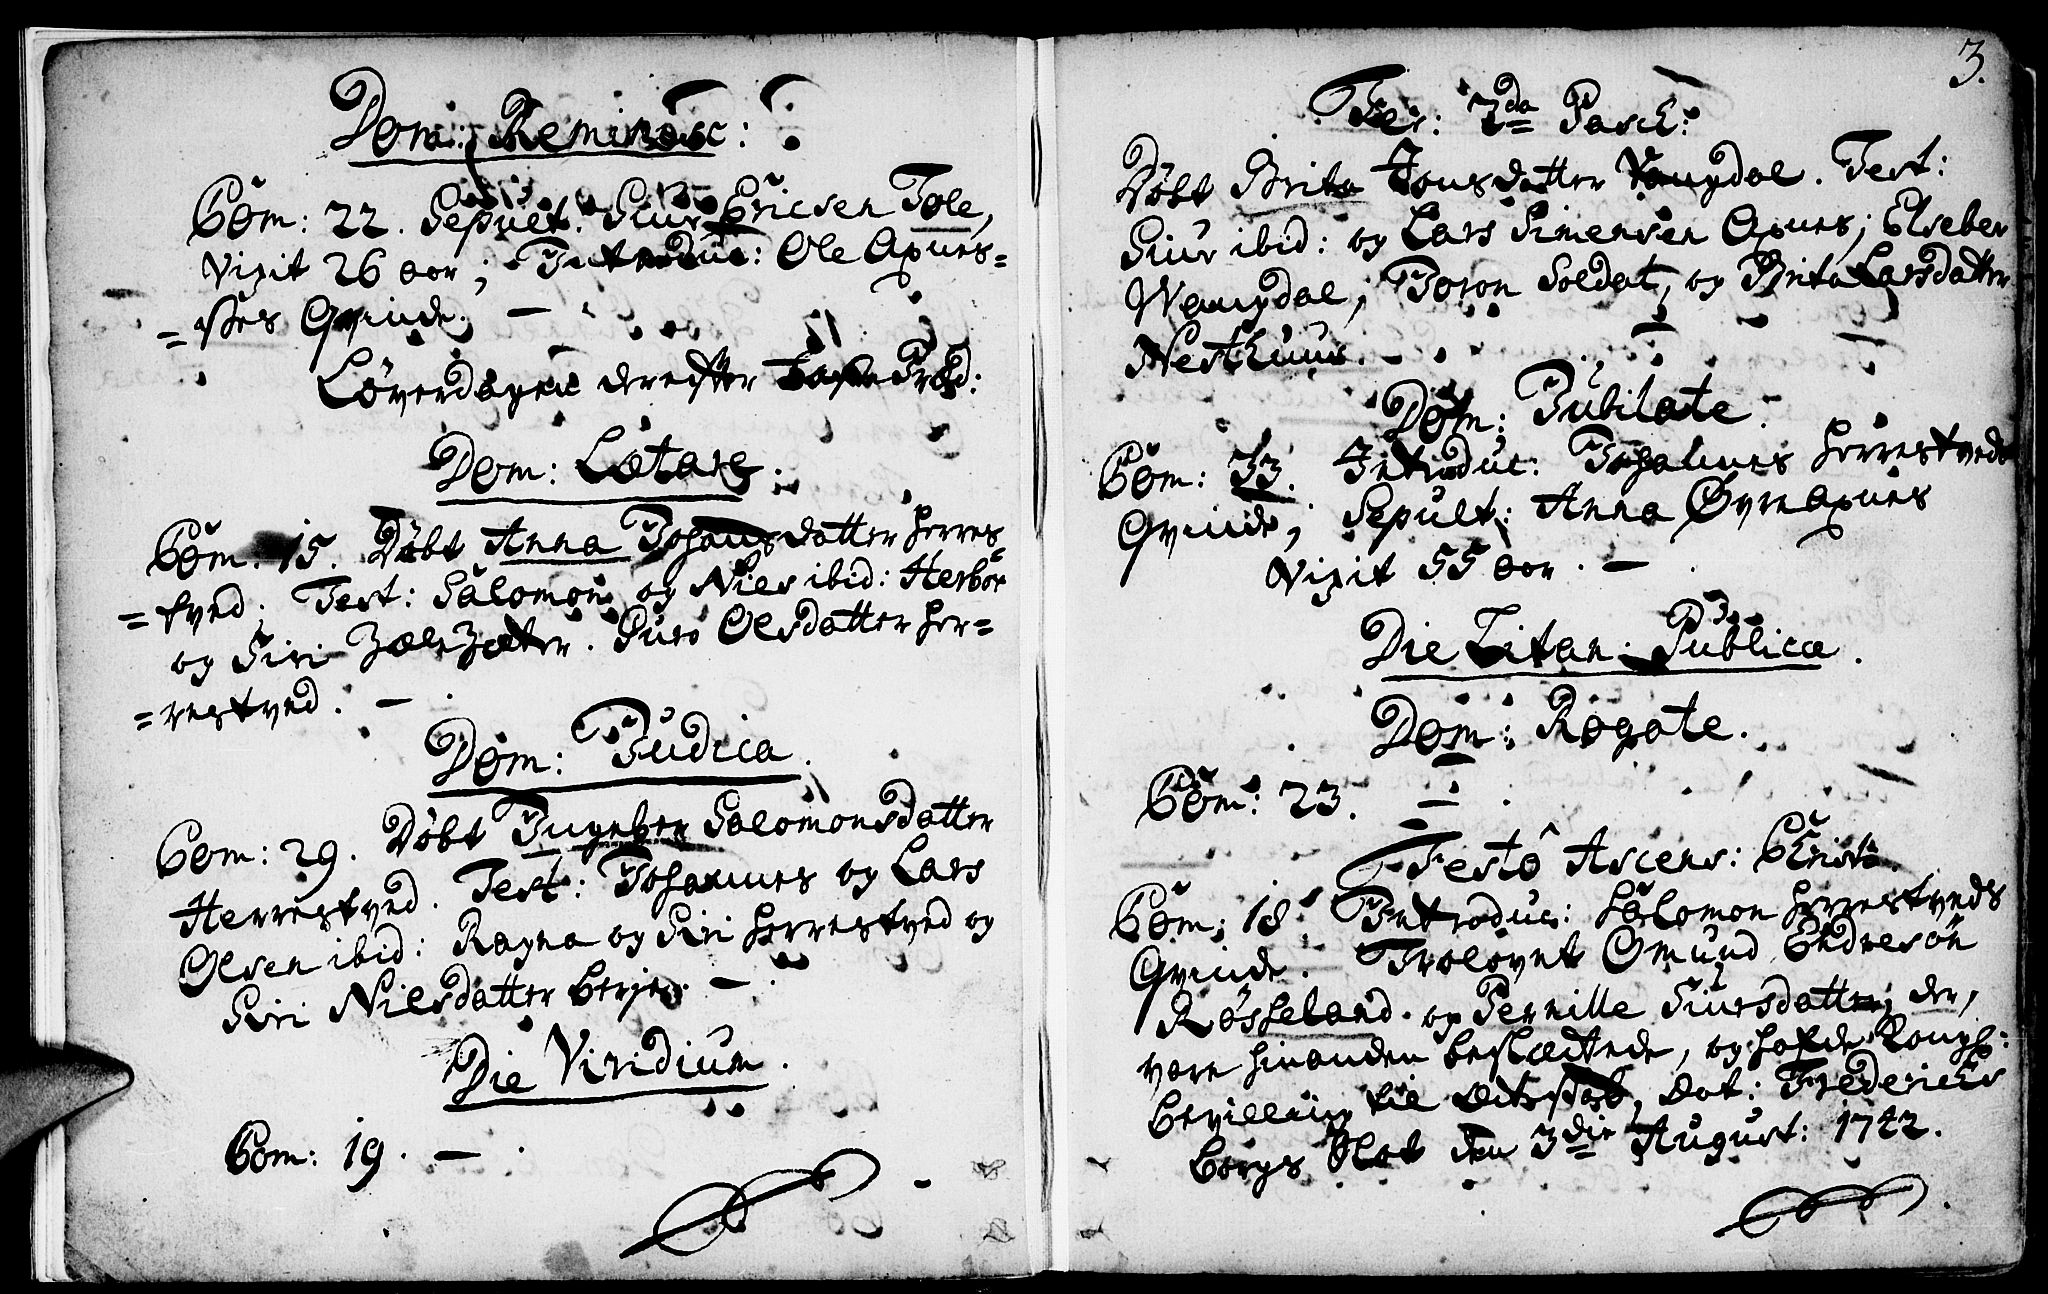 Dom: Reminisc:
Com: 22. Sepult: Siur Ericsen Tole,
Vixit 26 aar; Introduc: Ole Axnes=
=ses Qvinde. —
Løverdagen derefter Tr:
Dom: Lætare.
Com: 15. Døbt Anna Johansdatter Herres
=tved. Test: Salomon og Niels ibid: Herbor
og Siri Zæter. Guro Olsdatter Her=
=restved. —
Dom: Judica.
Com: 29. Døbt Ingeber Salomonsdatter
Herrestved. Test: Johannes og Lars
Olsen ibid: Ragna og Siri Herrestved og
Siri Nielsdatter Berje. —
Die Viridium.
Com: 19. —
3.
Fer: 2da Pasch:
Døbt Brita Jonsdatter Vangdal. Test:
Siur ibid: og Lars Simensen Axnes; Elseber
Wangdal; Joron Soldat, og Brita Larsdatter
Nesthuus. —
Dom: Jubilate.
Com: 33. Introduc: Johannes Herrestveds
Qvinde; Sepult: Anna Øvre Axnes
Vixit 55 aar. —
Die Litan: Publicæ.
Dom: Rogate.
Com: 23. —
Festo Ascens: Christi.
Com: 18. Introduc: Salomon Herrestveds
Qvinde. Trolovet Omund Endresøn
Røsseland. og Pernille Siursdatter, der,
vare hinanden beslægtede, og hafde Kongl:
bevilling til Dat: Friderichs
borgs Slot den 3die August: 1742.